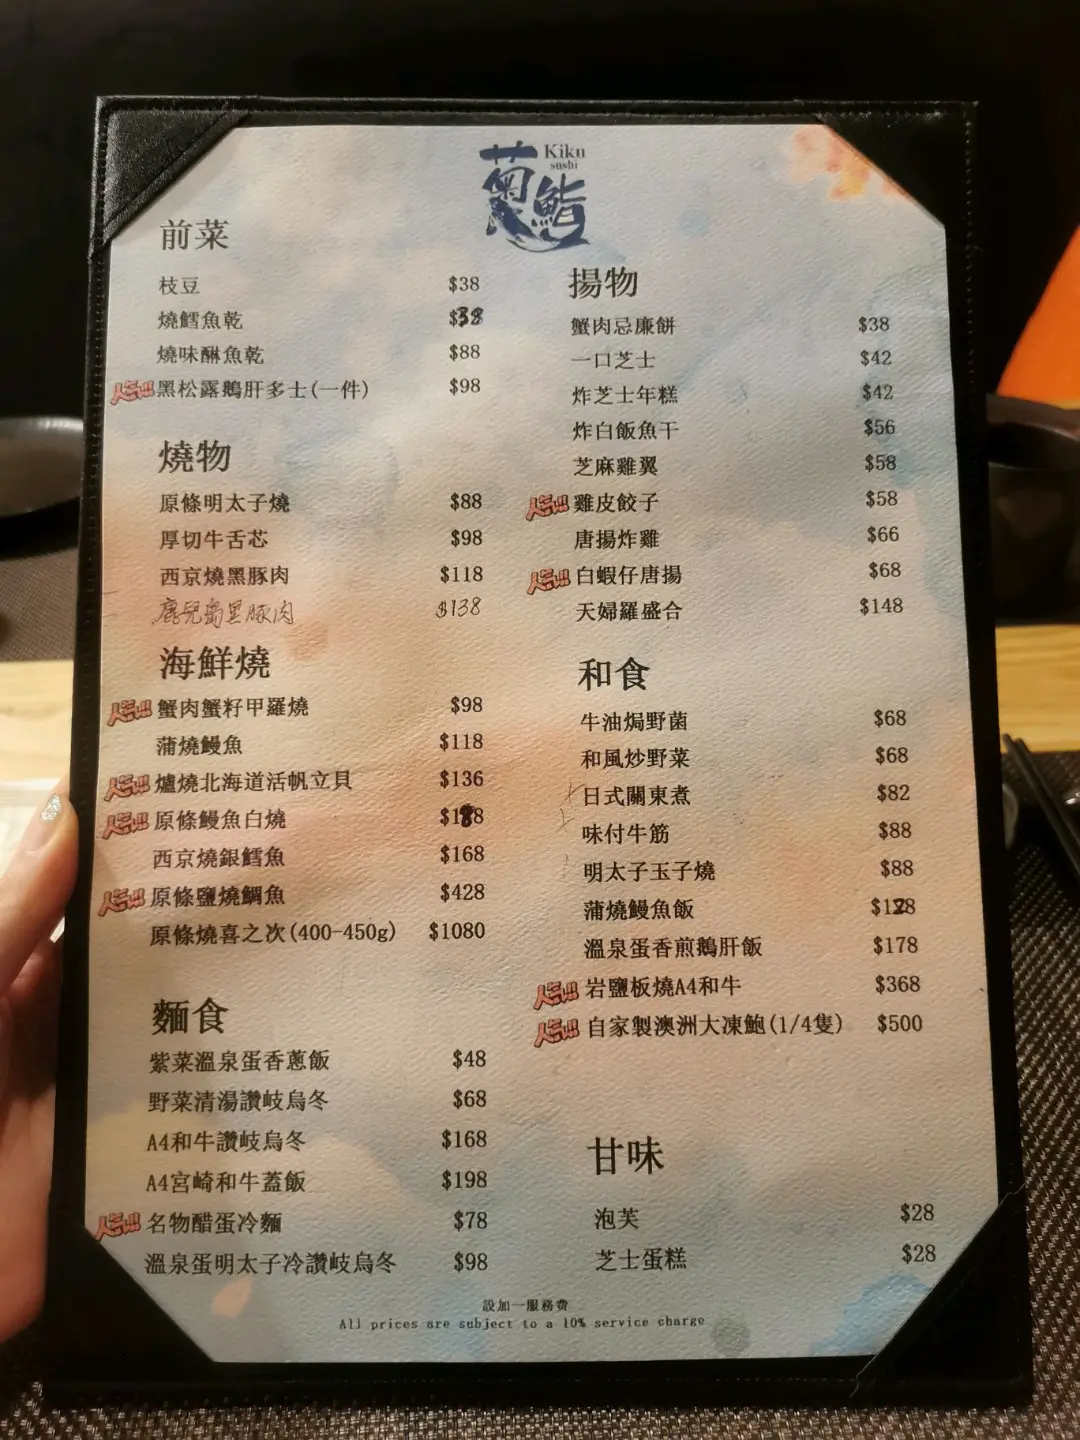 菊鮨
Kiku
sushi
前菜
枝豆 $38
燒鱈魚乾 $38
燒味醂魚乾 $88
人氣!!! 黑松露鵝肝多士(一件) $98
燒物
原條明太子燒 $88
厚切牛舌芯 $98
西京燒黑豚肉 $118
鹿兒島黑豚肉 $138
海鮮燒
人氣!!! 蟹肉蟹籽甲羅燒 $98
蒲燒鰻魚 $118
人氣!!! 爐燒北海道活帆立貝 $136
人氣!!! 原條鰻魚白燒 $188
西京燒銀鱈魚 $168
人氣!!! 原條鹽燒鯛魚 $428
原條燒喜之次(400-450g) $1080
麵食
紫菜溫泉蛋香蔥飯 $48
野菜清湯讚岐烏冬 $68
A4和牛讚岐烏冬 $168
A4宮崎和牛蓋飯 $198
人氣!!! 名物醋蛋冷麵 $78
溫泉蛋明太子冷讚岐烏冬 $98
揚物
蟹肉忌廉餅 $38
一口芝士 $42
炸芝士年糕 $42
炸白飯魚干 $56
芝麻雞翼 $58
人氣!!! 雞皮餃子 $58
唐揚炸雞 $66
人氣!!! 白蝦仔唐揚 $68
天婦羅盛合 $148
和食
牛油焗野菌 $68
和風炒野菜 $68
日式關東煮 $82
味付牛筋 $88
明太子玉子燒 $88
蒲燒鰻魚飯 $128
溫泉蛋香煎鵝肝飯 $178
人氣!!! 岩鹽板燒A4和牛 $368
人氣!!! 自家製澳洲大凍鮑(1/4隻) $500
甘味
泡芙 $28
芝士蛋糕 $28
設加一服務費
All prices are subject to a 10% service charge